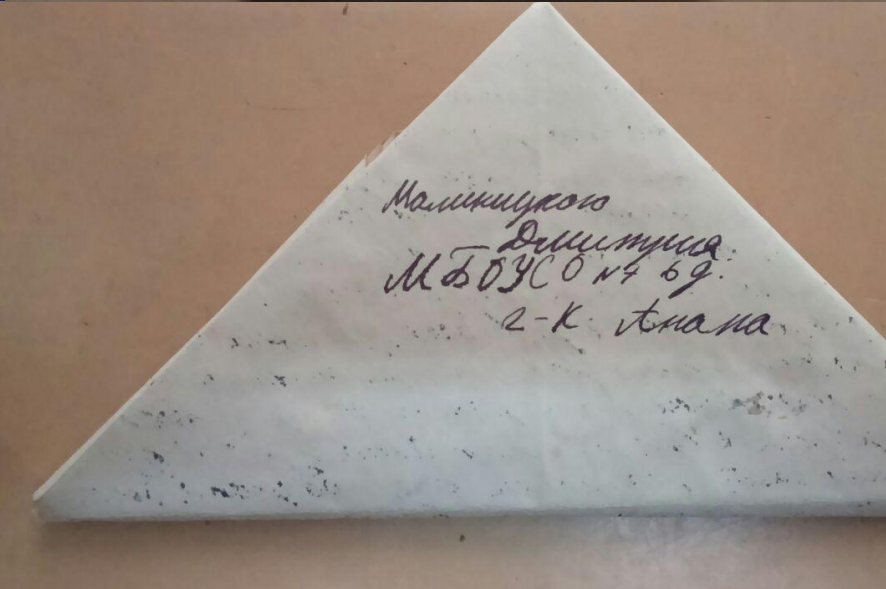 Малиницкого
Дмитрия
МБОУСО №7 6д.
г-к. Анапа